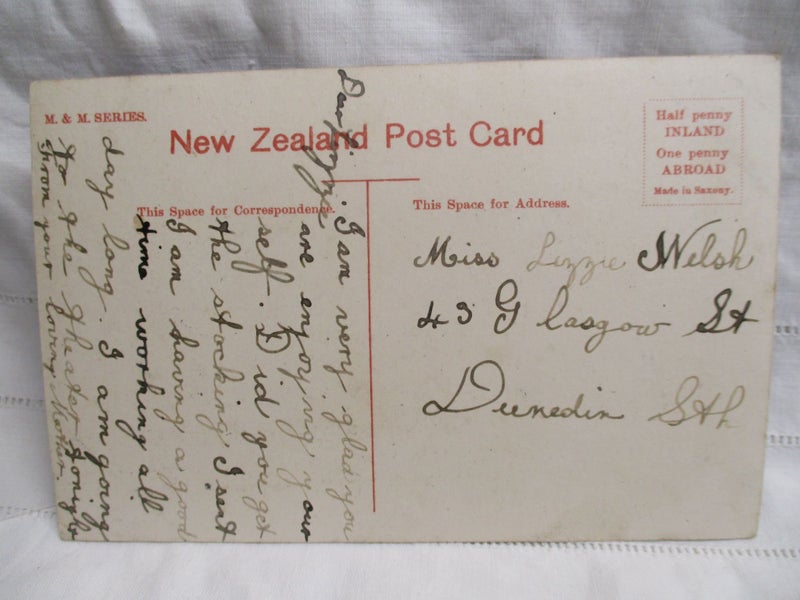 M. & M. SERIES.
New Zealand Post Card
Half penny
INLAND
One penny
ABROAD
Made in Saxony.
This Space for Correspondence.
This Space for Address.
Miss Lizzie Welsh
43 Glasgow St
Dunedin Sth
Dear Lizzie
I am very glad you
are enjoying your
self. Did you get
the stocking I sent
I am having a good
time working all
day long. I am going
to the theater tonight
from your loving Mother.